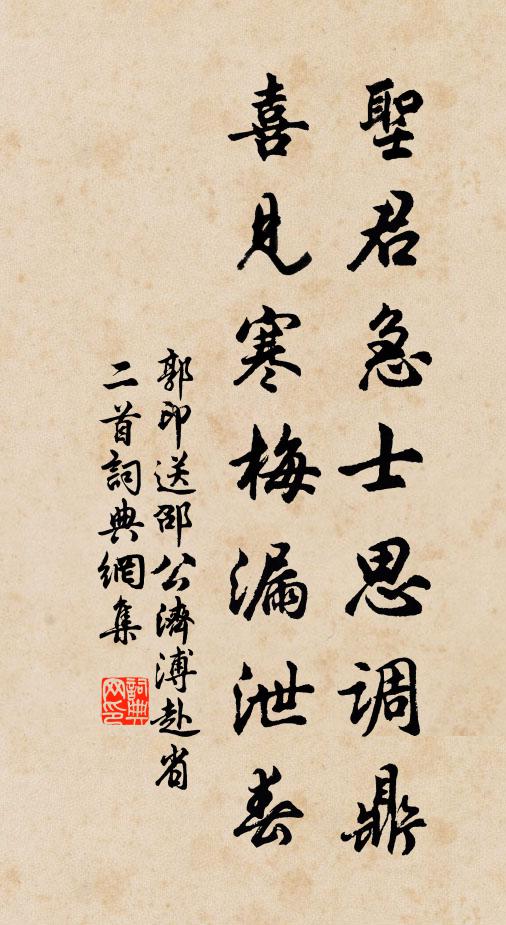 聖君急士思调鼎
喜見寒梅漏泄春
郭印送邵公濟溥赴省
二首詞典網集
詞典
网印